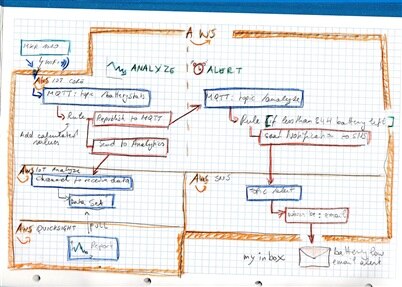 AWS
AWS IOT CORE
ANALYZE
ALERT
MQTT: topic /batterystats
MQTT: topic /analyze
Rule
Republish to MQTT
Rule
if less than 3.44 battery left
Add calculated values
Send to Analytics
Send Notification to SNS
AWS IOT Analyze
AWS SNS
Channel to receive data
Topic Alert
Data Set
AWS QUICKSIGHT
PULL
Report
my inbox
battery low
email alert